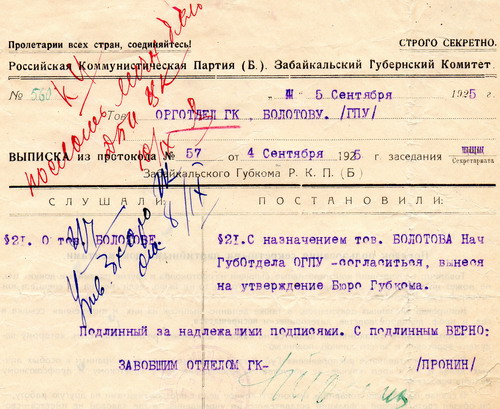 Пролетарии всех стран, соединяйтесь!
СТРОГО СЕКРЕТНО.
Российская Коммунистическая Партия (Б.). Забайкальский Губернский Комитет.
№ 560
5 Сентября 1925 г.
Тов. ОРГОТДЕЛ ГК, БОЛОТОВУ. /ГПУ/
ВЫПИСКА из протокола № 57 от 4 Сентября 1925 г. заседания Секретариата
Забайкальского Губкома Р. К. П. (Б)
СЛУШАЛИ: ПОСТАНОВИЛИ:
§21. О тов. БОЛОТОВЕ.
§21. С назначением тов. БОЛОТОВА Нач
ГубОтдела ОГПУ -согласиться, вынеся
на утверждение Бюро Губкома.
Подлинный за надлежащими подписями. С подлинным ВЕРНО:
ЗАВОБЩИМ ОТДЕЛОМ ГК- /ПРОНИН/